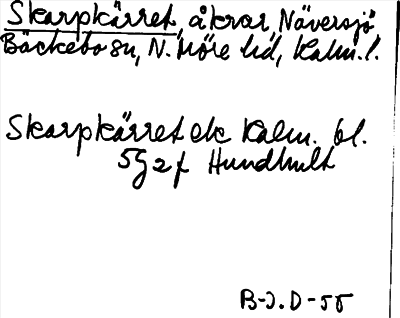 Skarpkärret, åkrar, Näversjö
Bäckebo sn, N. Möre hd, Kalm. l.
Skarpkärret ek Kalm. bl.
5G2f Hundhult
B-J.D-55